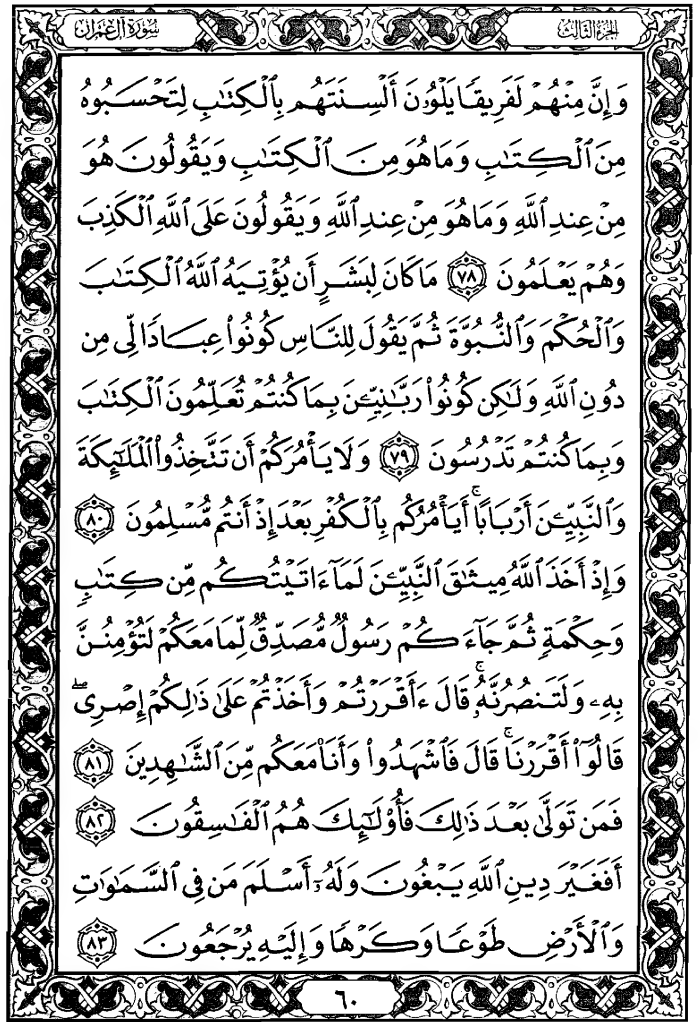 سورة آل عمران
الجزء الثالث
وَإِنَّ مِنْهُمْ لَفَرِيقًا يَلْوُۥنَ أَلْسِنَتَهُم بِٱلْكِتَٰبِ لِتَحْسَبُوهُ
مِنَ ٱلْكِتَٰبِ وَمَا هُوَ مِنَ ٱلْكِتَٰبِ وَيَقُولُونَ هُوَ
مِنْ عِندِ ٱللَّهِ وَمَا هُوَ مِنْ عِندِ ٱللَّهِ وَيَقُولُونَ عَلَى ٱللَّهِ ٱلْكَذِبَ
وَهُمْ يَعْلَمُونَ ٧٨ مَا كَانَ لِبَشَرٍ أَن يُؤْتِيَهُ ٱللَّهُ ٱلْكِتَٰبَ
وَٱلْحُكْمَ وَٱلنُّبُوَّةَ ثُمَّ يَقُولَ لِلنَّاسِ كُونُوا۟ عِبَادًا لِّى مِن
دُونِ ٱللَّهِ وَلَٰكِن كُونُوا۟ رَبَّٰنِيِّۦنَ بِمَا كُنتُمْ تُعَلِّمُونَ ٱلْكِتَٰبَ
وَبِمَا كُنتُمْ تَدْرُسُونَ ٧٩ وَلَا يَأْمُرَكُمْ أَن تَتَّخِذُوا۟ ٱلْمَلَٰٓئِكَةَ
وَٱلنَّبِيِّۦنَ أَرْبَابًا ۗ أَيَأْمُرُكُم بِٱلْكُفْرِ بَعْدَ إِذْ أَنتُم مُّسْلِمُونَ ٨٠
وَإِذْ أَخَذَ ٱللَّهُ مِيثَٰقَ ٱلنَّبِيِّۦنَ لَمَآ ءَاتَيْتُكُم مِّن كِتَٰبٍ
وَحِكْمَةٍ ثُمَّ جَآءَكُمْ رَسُولٌ مُّصَدِّقٌ لِّمَا مَعَكُمْ لَتُؤْمِنُنَّ
بِهِۦ وَلَتَنصُرُنَّهُۥ ۚ قَالَ ءَأَقْرَرْتُمْ وَأَخَذْتُمْ عَلَىٰ ذَٰلِكُمْ إِصْرِى ۖ
قَالُوٓا۟ أَقْرَرْنَا ۚ قَالَ فَٱشْهَدُوا۟ وَأَنَا۠ مَعَكُم مِّنَ ٱلشَّٰهِدِينَ ٨١
فَمَن تَوَلَّىٰ بَعْدَ ذَٰلِكَ فَأُو۟لَٰٓئِكَ هُمُ ٱلْفَٰسِقُونَ ٨٢
أَفَغَيْرَ دِينِ ٱللَّهِ يَبْغُونَ وَلَهُۥٓ أَسْلَمَ مَن فِى ٱلسَّمَٰوَٰتِ
وَٱلْأَرْضِ طَوْعًا وَكَرْهًا وَإِلَيْهِ يُرْجَعُونَ ٨٣
٦٠